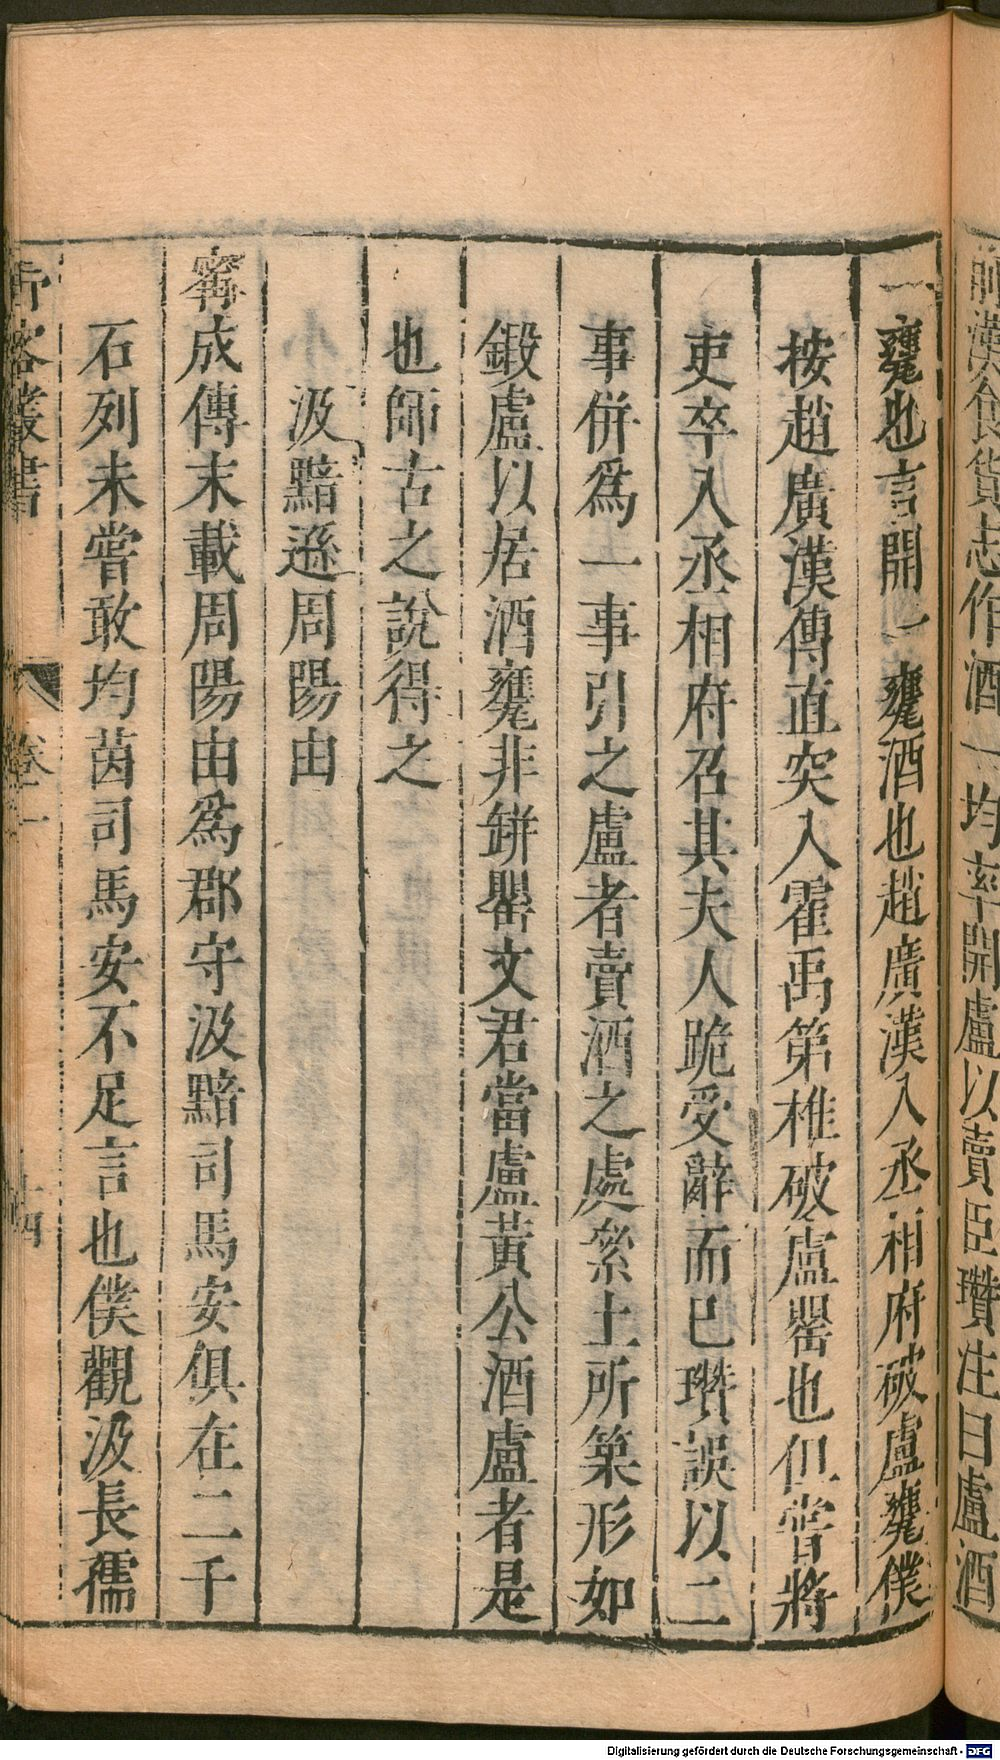 前漢食貨志作酒一均率開盧以賣臣瓚注曰盧酒
甕也言開一甕酒也趙廣漢入丞相府破盧甕僕
按趙廣漢傳直突入霍禹第椎破盧罌也但嘗將
吏卒入丞相府召其夫人跪受辭而已瓚誤以二
事併爲一事引之盧者賣酒之處絫土所築形如
鍛盧以居酒甕非缾罌文君當盧黃公酒盧者是
也師古之說得之
汲黯遜周陽由
甯成傳末載周陽由爲郡守汲黯司馬安俱在二千
石列未嘗敢均茵司馬安不足言也僕觀汲長孺
卷一
十四
Digitalisierung gefördert durch die Deutsche Forschungsgemeinschaft - DFG